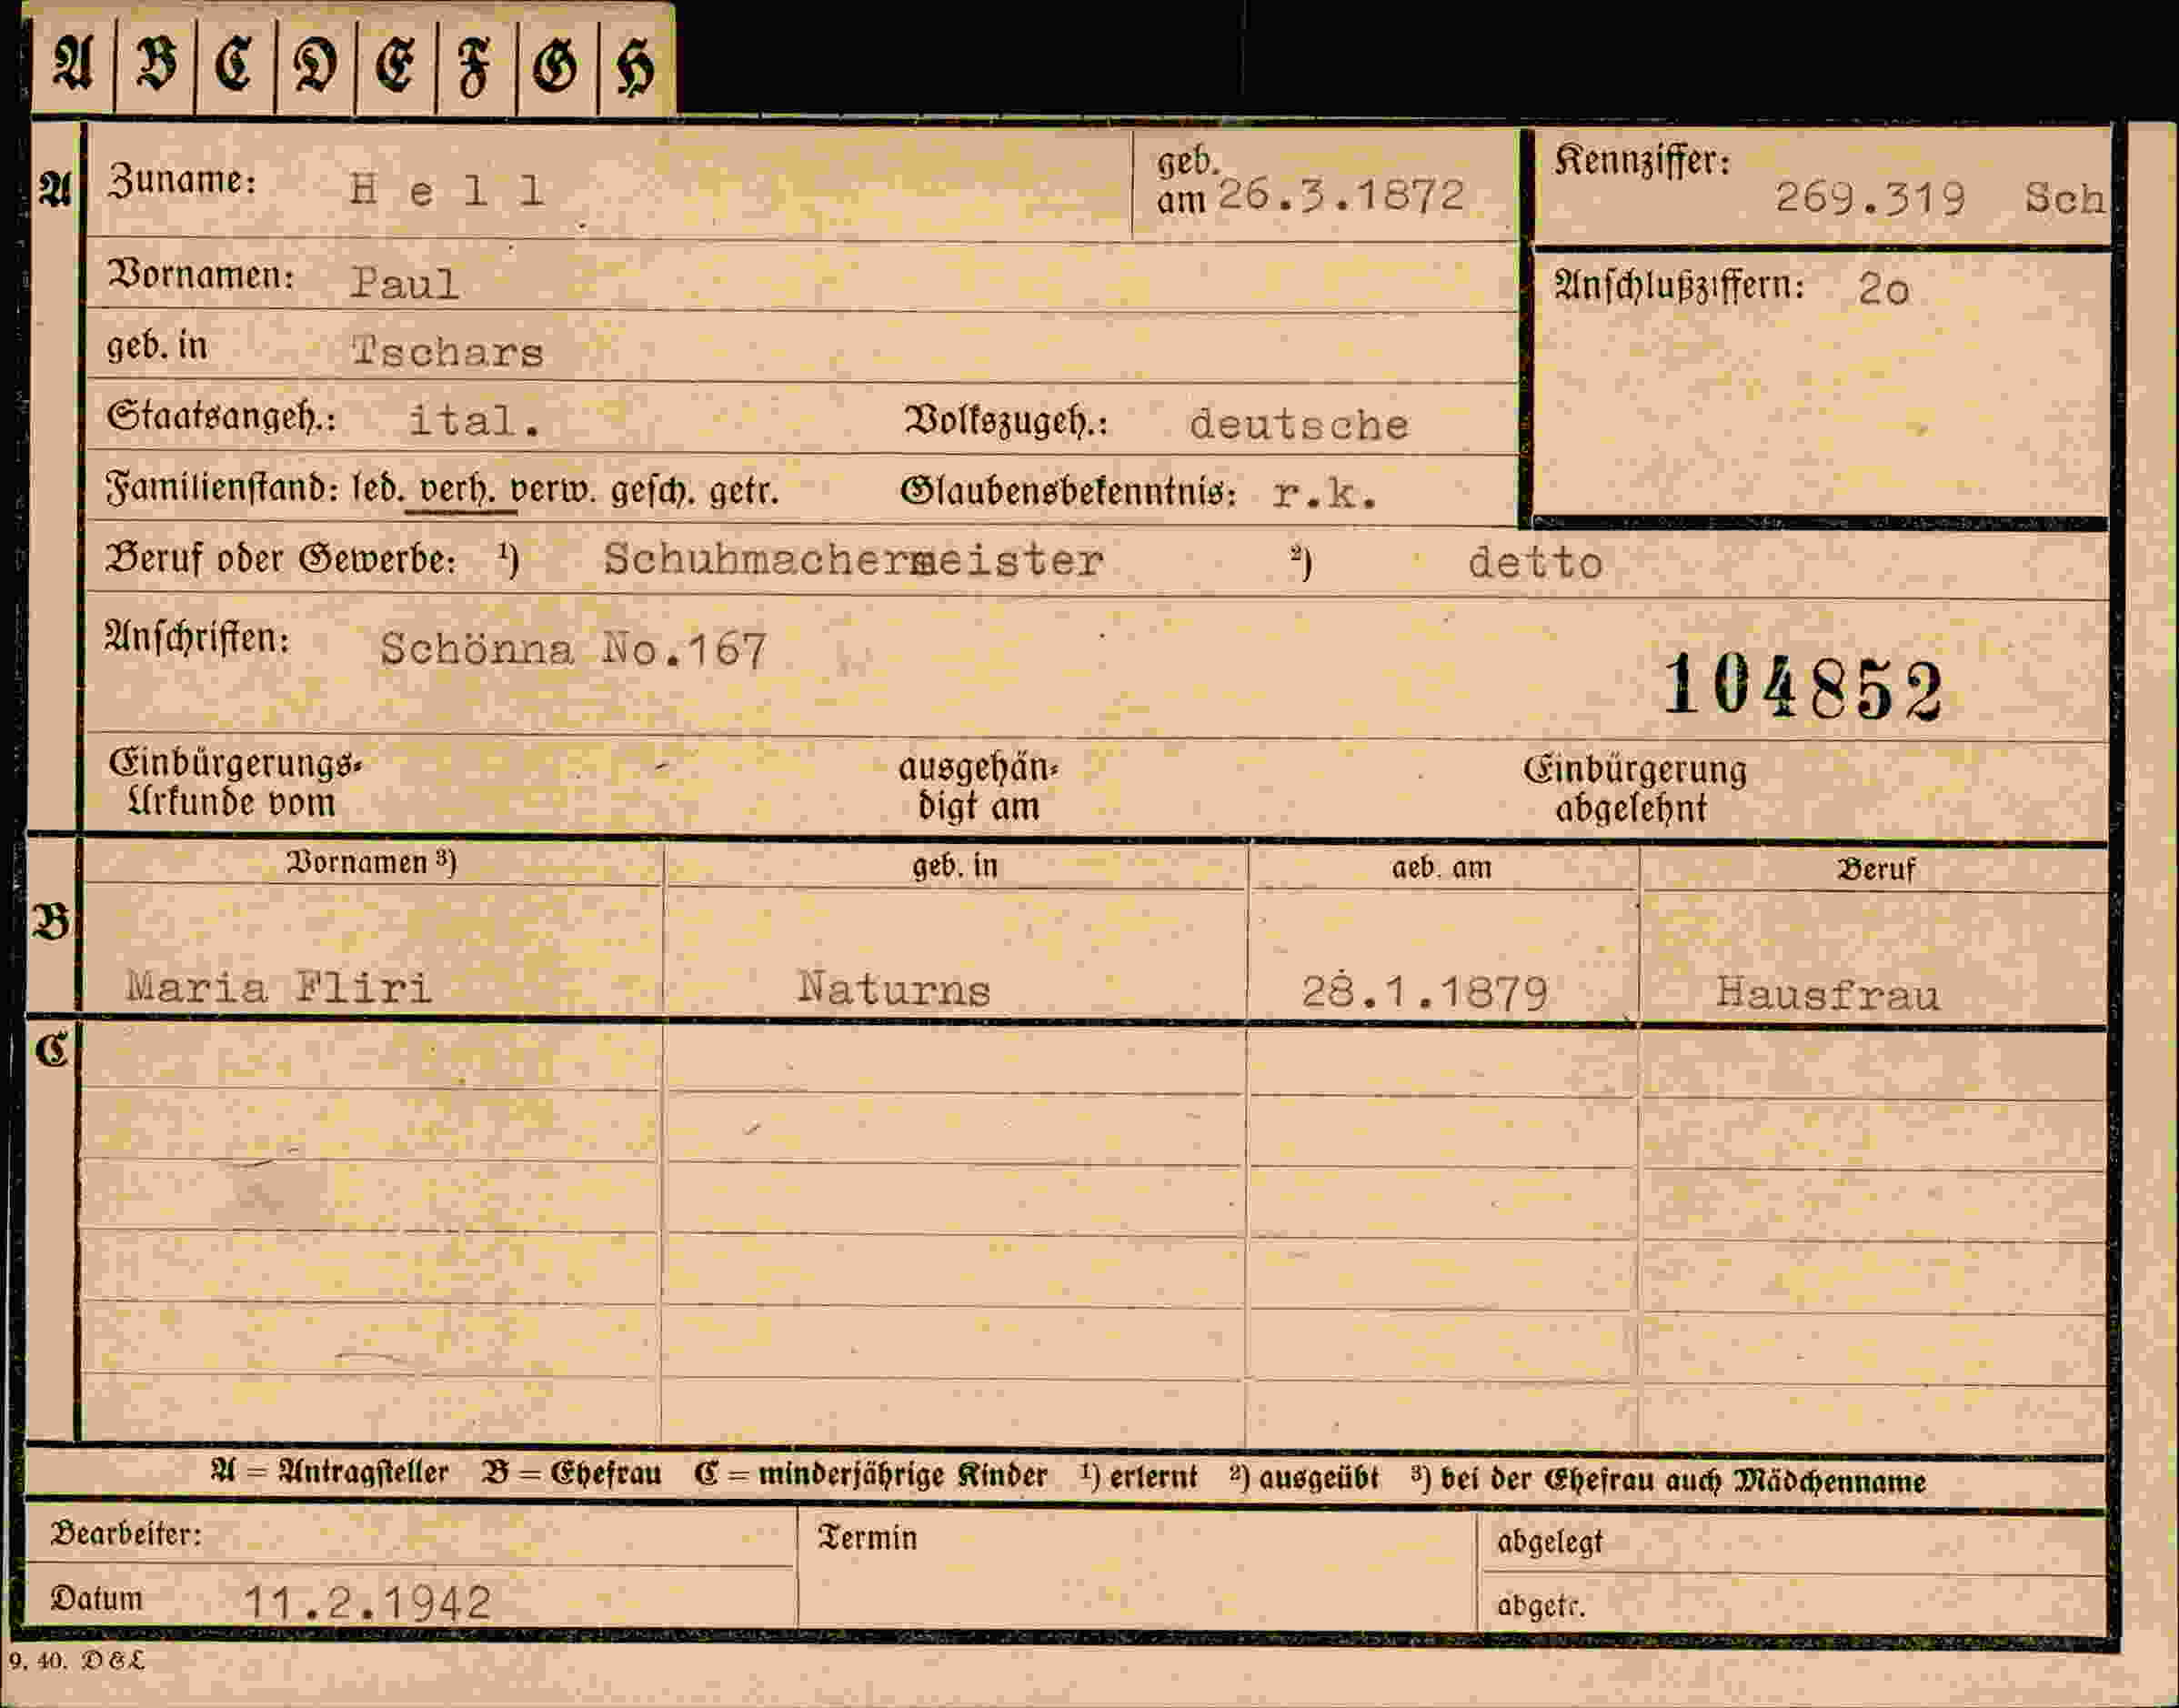 A B C D E F G H
A Zuname: Hell geb. am 26.3.1872 Kennziffer: 269.319 Sch
Vornamen: Paul Anschlußziffern: 2o
geb. in Tschars
Staatsangeh.: ital. Volkszugeh.: deutsche
Familienstand: led. verh. verw. gesch. getr. Glaubensbekenntnis: r.k.
Beruf oder Gewerbe: ¹) Schuhmachermeister ²) detto
Anschriften: Schönna No.167
104852
Einbürgerungs- ausgehän- Einbürgerung
Urkunde vom digt am abgelehnt
Vornamen ³) geb. in geb. am Beruf
B
Maria Fliri Naturns 28.1.1879 Hausfrau
C
A = Antragsteller B = Ehefrau C = minderjährige Kinder ¹) erlernt ²) ausgeübt ³) bei der Ehefrau auch Mädchenname
Bearbeiter: Termin abgelegt
Datum 11.2.1942 abgetr.
9. 40. D & L